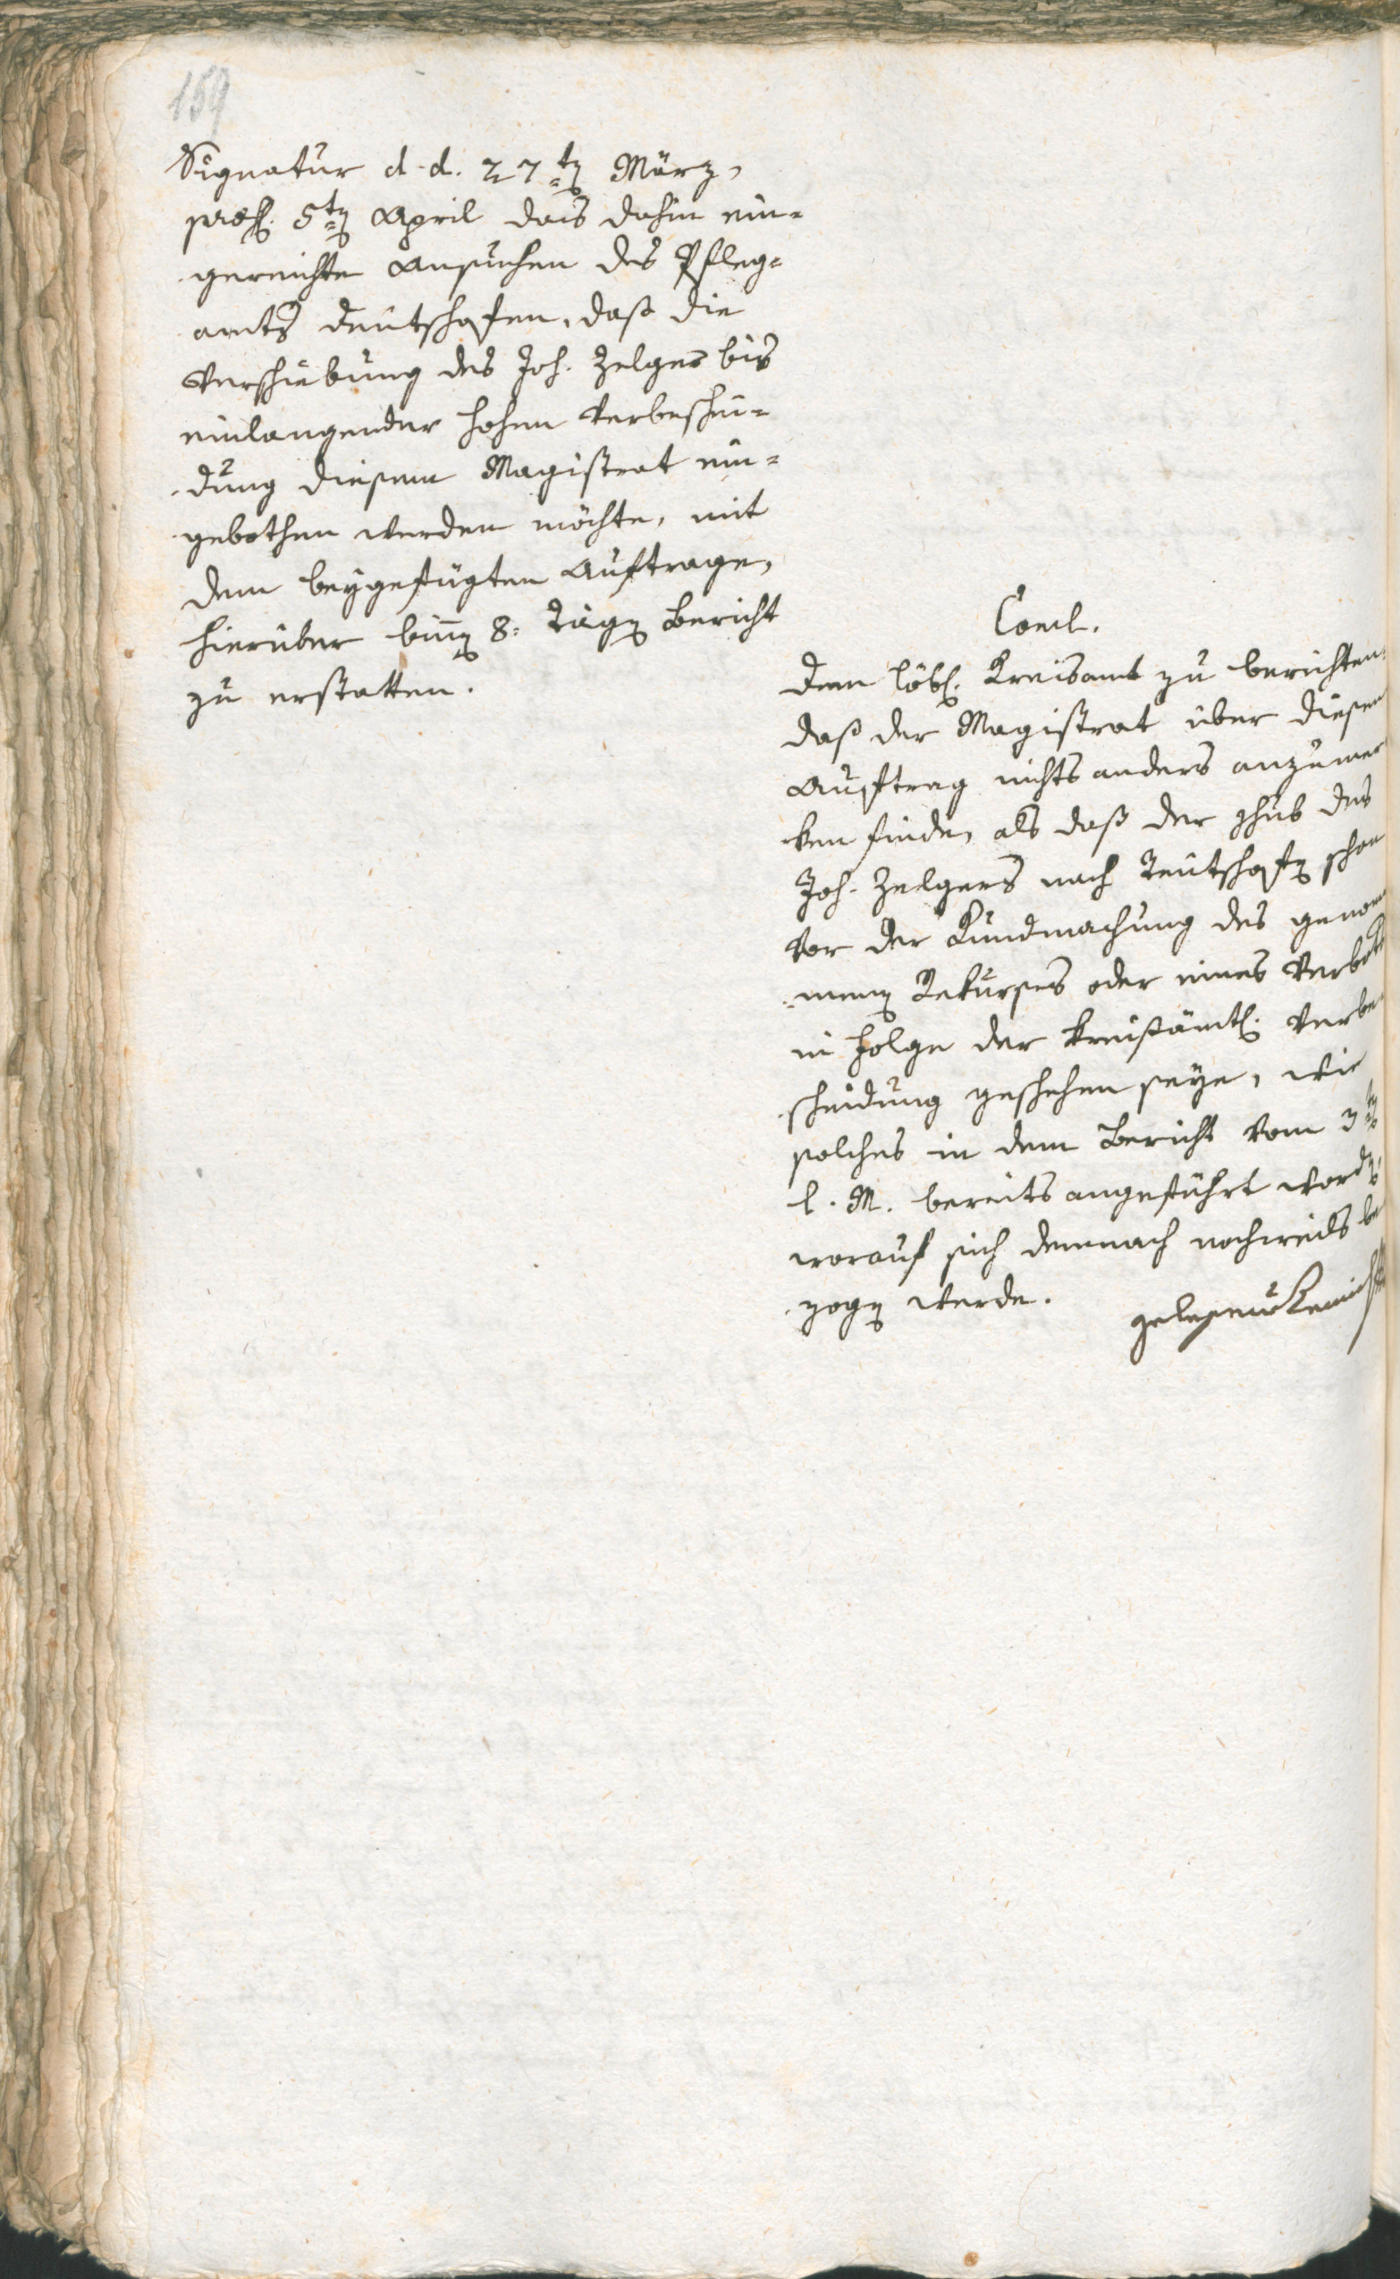 159
Signatur d. d. 27ten März,
præs. 5ten April das dahin ein=
gereichte Ansuchen des Pfleg=
amts Deutschofen, daß die
Verschiebung des Joh. Zelger bis
einlangender hohen Verbeschei=
dung diesem Magistrat ein=
gebothen werden möchte, mit
dem beygefügten Auftrage,
hierüber binnen 8. Tägen Bericht
zu erstatten.
Concl.
Dem löbl. Kreisamt zu berichten,
daß der Magistrat über diesen
Auftrag nichts anders anzumer
ken finde, als daß der Schub des
Joh. Zelgers nach Teutschofen schon
vor der Kundmachung des genom
menen Rekurses oder eines Verboths
in Folge der kreisämtl. Verbe
scheidung geschehen seye, wie
solches in dem Bericht vom 3ten
l. M. bereits angeführt worden,
worauf sich demnach nochmals be
zogen werde.